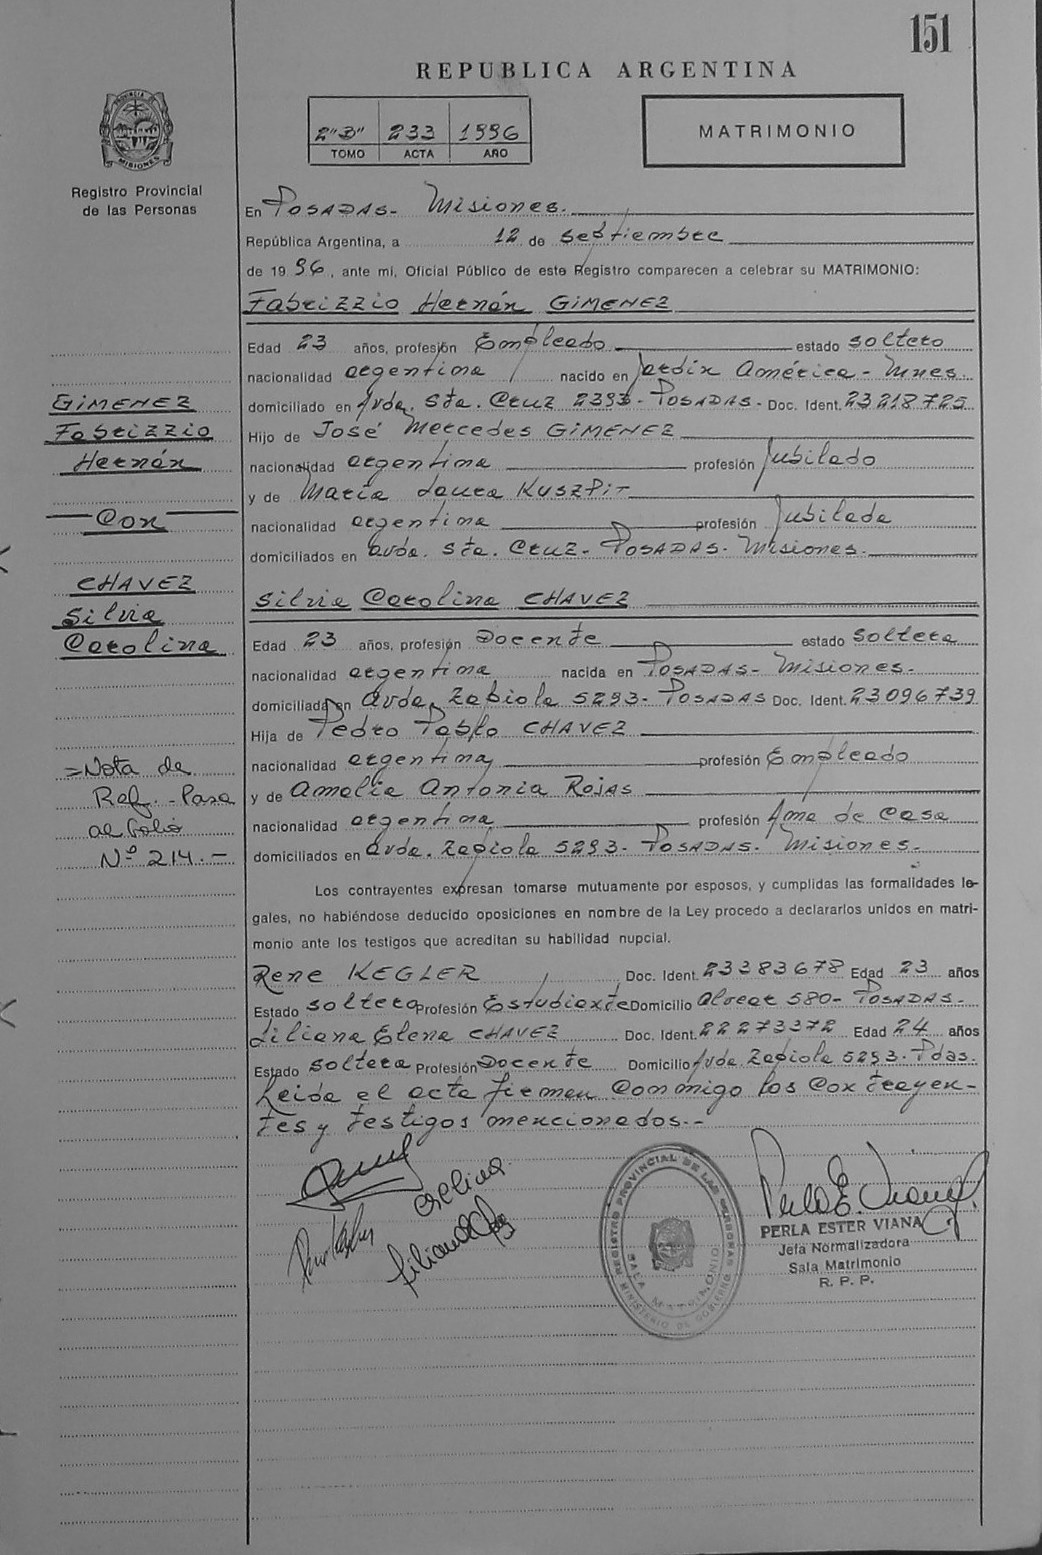 151
REPUBLICA ARGENTINA
2"B" 233 1996
TOMO ACTA AÑO
MATRIMONIO
PROVINCIA DE
MISIONES
Registro Provincial
de las Personas
En POSADAS- Misiones.
República Argentina, a 12 de septiembre
de 1996, ante mi, Oficial Público de este Registro comparecen a celebrar su MATRIMONIO:
Fabrizzio Hernán GIMENEZ
Edad 23 años, profesión Empleado estado soltero
nacionalidad argentina nacido en Jardín América - Mnes.
domiciliado en Avda. Sta. Cruz 2393- POSADAS- Doc. Ident. 23218725
Hijo de José Mercedes GIMENEZ
nacionalidad argentina profesión Jubilado
y de María Laura KUSZPIT
nacionalidad argentina profesión Jubilada
domiciliados en avda. Sta. Cruz- POSADAS- Misiones.
Silvia Carolina CHAVEZ
Edad 23 años, profesión Docente estado soltera
nacionalidad argentina nacida en POSADAS- Misiones.
domiciliada en avda. Zapiola 5293- POSADAS Doc. Ident. 23096739
Hija de Pedro Pablo CHAVEZ
nacionalidad argentina profesión Empleado
y de Amalia Antonia ROJAS
nacionalidad argentina profesión Ama de Casa
domiciliados en avda. Zapiola 5293- POSADAS. Misiones.
GIMENEZ
Fabrizzio
Hernán
Con
CHAVEZ
Silvia
Carolina
=Nota de
Ref. - Pasa
al folio
Nº 214.-
Los contrayentes expresan tomarse mutuamente por esposos, y cumplidas las formalidades le-
gales, no habiéndose deducido oposiciones en nombre de la Ley procedo a declararlos unidos en matri-
monio ante los testigos que acreditan su habilidad nupcial.
Rene KEGLER Doc. Ident. 23383678 Edad 23 años
Estado soltero Profesión Estudiante Domicilio alvear 580- POSADAS-
Liliana Elena CHAVEZ Doc. Ident. 22273372 Edad 24 años
Estado soltera Profesión Docente Domicilio Avda. Zapiola 5293. Pdas.
Leida el acta firman conmigo los contrayen-
tes y testigos mencionados.-
REGISTRO PROVINCIAL DE LAS PERSONAS
SALA MATRIMONIO
MINISTERIO DE GOBIERNO
PERLA ESTER VIANA
Jefa Normalizadora
Sala Matrimonio
R. P. P.